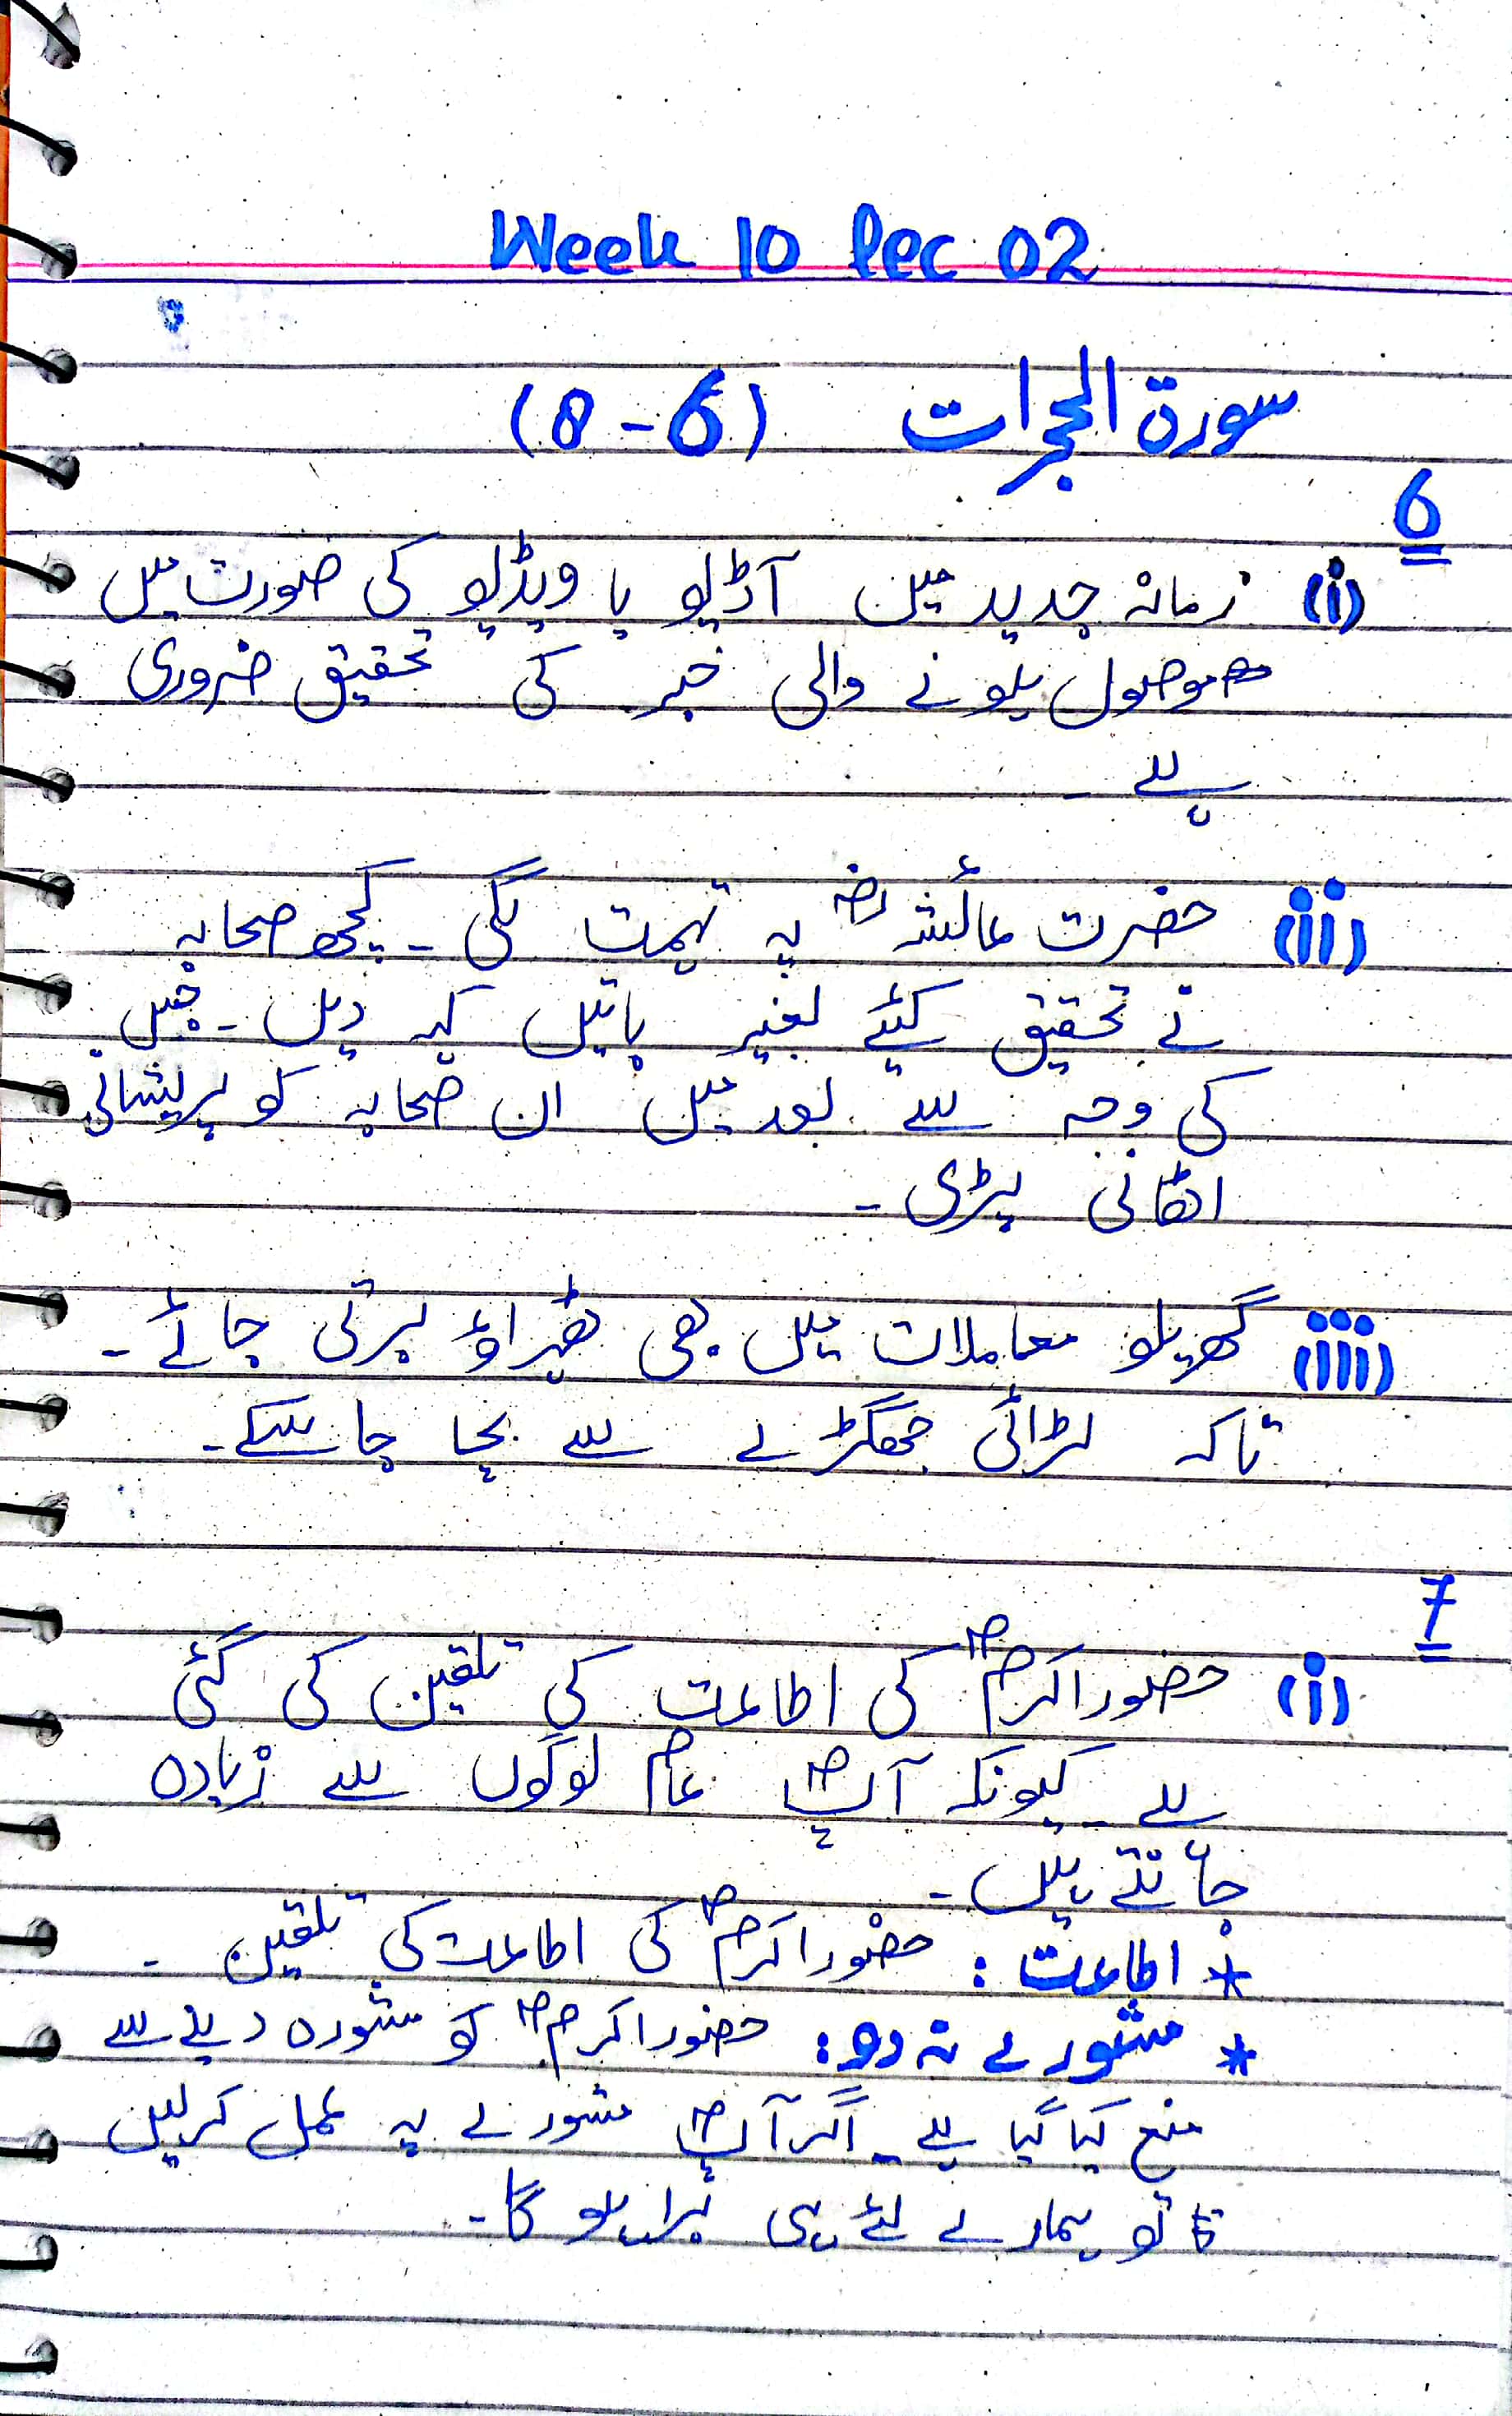 Week 10 lec 02
سورۃ الحجرات (6 - 8)
6
(i) زمانہ جدید میں آڈیو یا ویڈیو کی صورت میں
موصول ہونے والی خبر کی تحقیق ضروری
ہے ۔
(ii) حضرت عائشہ رضہ پہ تہمت لگی ۔ کچھ صحابہ
نے تحقیق کئیے بغیر باتیں کہہ دیں ۔ جس
کی وجہ سے بعد میں ان صحابہ کو پریشانی
اٹھانی پڑی ۔
(iii) گھریلو معاملات میں بھی ٹھہراؤ برتی جائے ۔
تاکہ لڑائی جھگڑے سے بچا جا سکے ۔
7
(i) حضور اکرمؐ کی اطاعت کی تلقین کی گئی
ہے ۔ کیونکہ آپؐ عام لوگوں سے زیادہ
جانتے ہیں ۔
* اطاعت : حضور اکرمؐ کی اطاعت کی تلقین ۔
* مشورے نہ دو : حضور اکرمؐ کو مشورہ دینے سے
منع کیا گیا ہے ۔ اگر آپؐ مشورے پہ عمل کرلیں
تو ہمارے لئے ہی برا ہو گا ۔